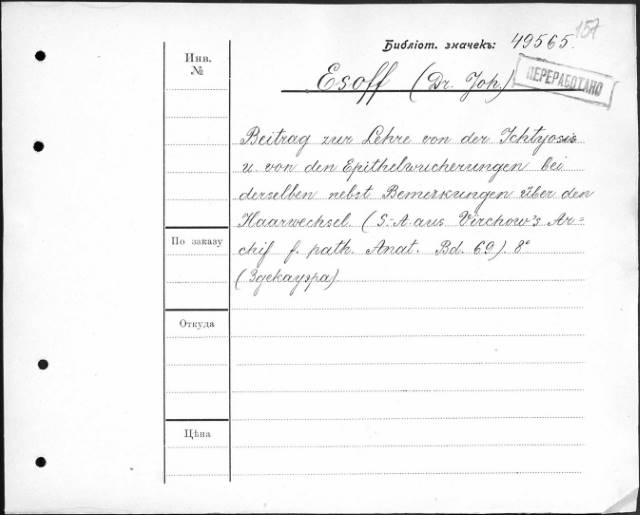 157
Библіот. значекъ: 49565.
Инв.
№
Esoff (Dr. Joh.)
ПЕРЕРАБОТАНО
Beitrag zur Lehre von der Ichtyosis
u. von den Epithelwucherungen bei
derselben nebst Bemerkungen über den
Haarwechsel. (S.-A. aus Virchow's Ar=
chif f. path. Anat. Bd. 69). 8°
(Здекауэра).
По заказу
Откуда
Цѣна